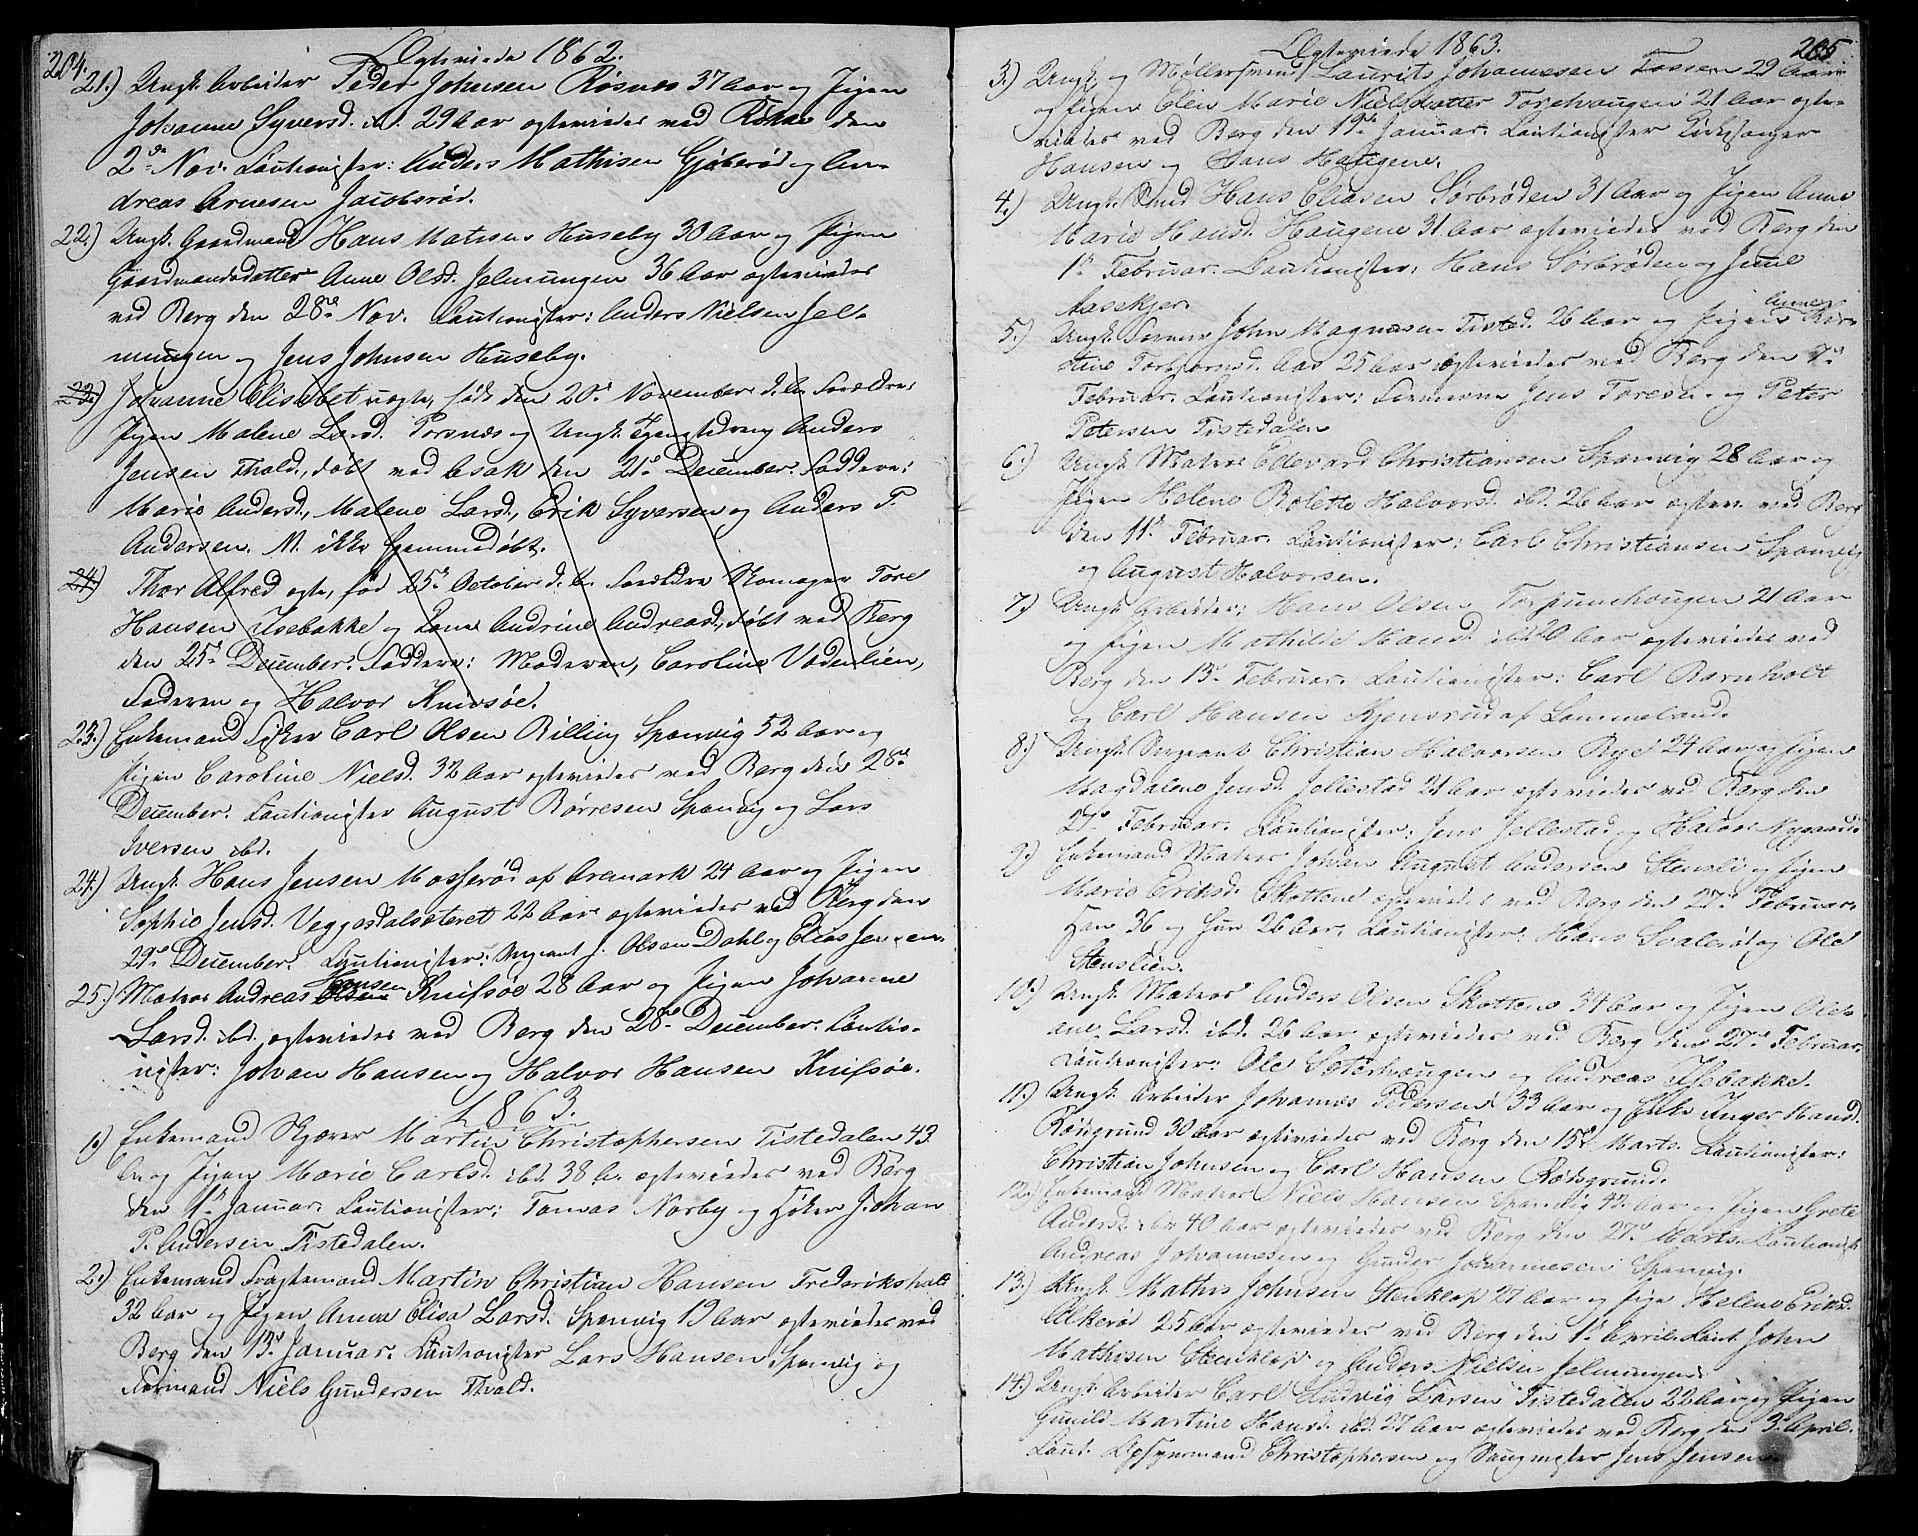 204.
Ægteviede 1862.
21.) Ungk. Arbeider Peder Johnsen Røsnes 37 Aar og Pigen
Johanne Syversd. ibd. 29 Aar ægteviedes ved Rokke den
2de Nov. Cautionister: Anders Mathisen Gjøberød og An-
dreas Arnesen Jacobsrød.
22.) Ungk. Gaardmand Hans Matisen Huseby 30 Aar og Pigen
Gaardmandsdatter Anne Olsd. Jelmungen 36 Aar ægteviedes
ved Berg den 28de Nov. Cautionister: Anders Nielsen Jel-
mungen og Jens Johnsen Huseby.
23.) Johanne Elisabet uægte, født den 20de November d.A. Forældre:
Pigen Malene Larsd. Torsnæs og Ungk. Anders
Jensen Fhald., døbt ved Asak den 21de December. Faddere:
Marie Andersd., Malene Larsd., Erik Syversen og Anders P.
Andersen. N. ikke hjemmedøbt.
24.) Thor Alfred ægte, fød 25de October d. A. Forældre Skomager Tore
Hansen Isebakke og Kone Andrine Andreasd., døbt ved Berg
den 25de December. Faddere: Moderen, Caroline Vadenlien,
Faderen og Halvor Knivsøe.
23.) Enkemand Fisker Carl Olsen Billing Sponvig 52 Aar og
Pigen Caroline Nielsd. 32 Aar ægteviedes ved Berg den 28de
December. Cautionister August Børresen Sponvig og Lars
Iversen ibd.
24.) Ungk. Hans Jensen Mosserød af Aremark 24 Aar og Pigen
Sophie Jensd. Veggesdalsæteret 22 Aar ægteviedes ved Berg den
29de December. Cautionister: Sergeant J. Olsen Dahl og Elias Jensen.
25.) Matros Andreas Hansen Knifsøe 28 Aar og Pigen Johanne
Larsd. ibd. ægteviedes ved Berg den 28de December. Cautio-
nister: Johan Hansen og Halvor Hansen Knifsøe.
1863.
1.) Enkemand Skjærer Martin Christophersen Tistedalen 43
A. og Pigen Marie Carlsd. ibd. 38 A. ægteviedes ved Berg
den 1de Januar. Cautionister: Tomas Norby og Høker Johan
P. Andersen Tistedalen.
2.) Enkemand Fragtemand Martin Christian Hansen Frederikshald
32 Aar og Pigen Anne Elisa Larsd. Sponvig 19 Aar ægteviedes ved
Berg den 13de Januar. Cautionister Lars Hansen Sponvig og
Formand Niels Gundersen Fhald.
205
Ægteviede 1863.
3.) Ungk. og Møllersvend Laurits Johannesen Fossen 29 Aar
og Pigen Elen Marie Nielsdatter Torehougen 21 Aar ægte-
viedes ved Berg den 19de Januar. Cautionister Kirkesanger
Hansen og Hans Haugene.
4.) Ungk. Smed Hans Eliasen Sørbrøden 31 Aar og Pigen Anne
Marie Hansd. Haugene 31 Aar ægteviedes ved Berg den
1de Februar. Cautionister: Hans Sørbrøden og Jens
Aasekjer.
5.) Ungk. Former John Magnussen Tisted. 26 Aar og Pigen Anne Kir-
stine Torbjørnsd. Aas 25 Aar ægteviedes ved Berg den 7de
Februar. Cautionister: Formerne Jens Toresen og Peter
Petersen Tistedalen
6.) Ungk. Matros Edevard Christiansen Sponvig 28 Aar og
Pigen Helene Bolette Halvorsd. ibd. 26 Aar ægtev. ved Berg
den 11de Februar. Cautionister: Carl Christiansen Sponvig
og August Halvorsen.
7.) Ungk. Arbeider: Hans Olsen Torpumhougen 21 Aar
og Pigen Mathilde Hansd. ibd. 20 Aar ægteviedes ved
Berg den 13de Februar. Cautionister: Carl Barnholt
og Carl Hansen Kjensrud af Lammeland.
8.) Ungk. Sergeant Christian Halvorsen Rye 24 Aar og Pigen
Magdalene Jensd. Jellestad 21 Aar ægteviedes ved Berg den
27de Februar. Cautionister: Jens Jellestad og Halvor Nygaard.
9.) Enkemand Matros Johan August Andersen Stensli og Pigen
Marie Eriksd. Skottene ægteviedes ved Berg den 27de Februar.
Han 36 og hun 26 Aar. Cautionister: Hans Svalerød og Ole
Stenslien.
10.) Ungk. Matros Anders Olsen Skottene 34 Aar og Pigen Ole-
ane Larsd. ibd. 26 Aar ægteviedes ved Berg den 27de Februar.
Cautionister: Ole Sæterhougen og Andreas Isebakke.
11.) Ungk. Arbeider Johannes Pedersen 33 Aar og Enke Inger Hansd.
Rødsgrund 30 Aar ægteviedes ved Berg den 15de Marts. Cautionister:
Christian Johnsen og Carl Hansen Rødsgrund.
12.) Enkemand Matros Niels Hansen Sponvig 42 Aar og Pigen Grete
Andersd. ibd. 40 Aar ægteviedes ved Berg den 27de Marts. Cautionist.
Andreas Johannesen og Gunder Johannesen Sponvig.
13.) Ungk. Mathis Johnsen Stenklop 27 Aar og Pige Helene Eriksd.
Alkerød 25 Aar ægteviedes ved Berg den 1de April. Caut. John
Mathisen Stenklop og Anders Nielsen Jelmungen.
14.) Ungk. Arbeider Carl Ludvig Larsen Tistedalen 22 Aar og Pigen
Gunild Martine Hansd. ibd. 27 Aar ægteviedes ved Berg den 3de April.
Caut. Opsynsmand Christophersen og Saugmester Jens Jensen.